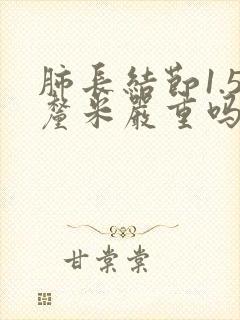 肺長結節1.5
釐米嚴重吗
甘棠棠